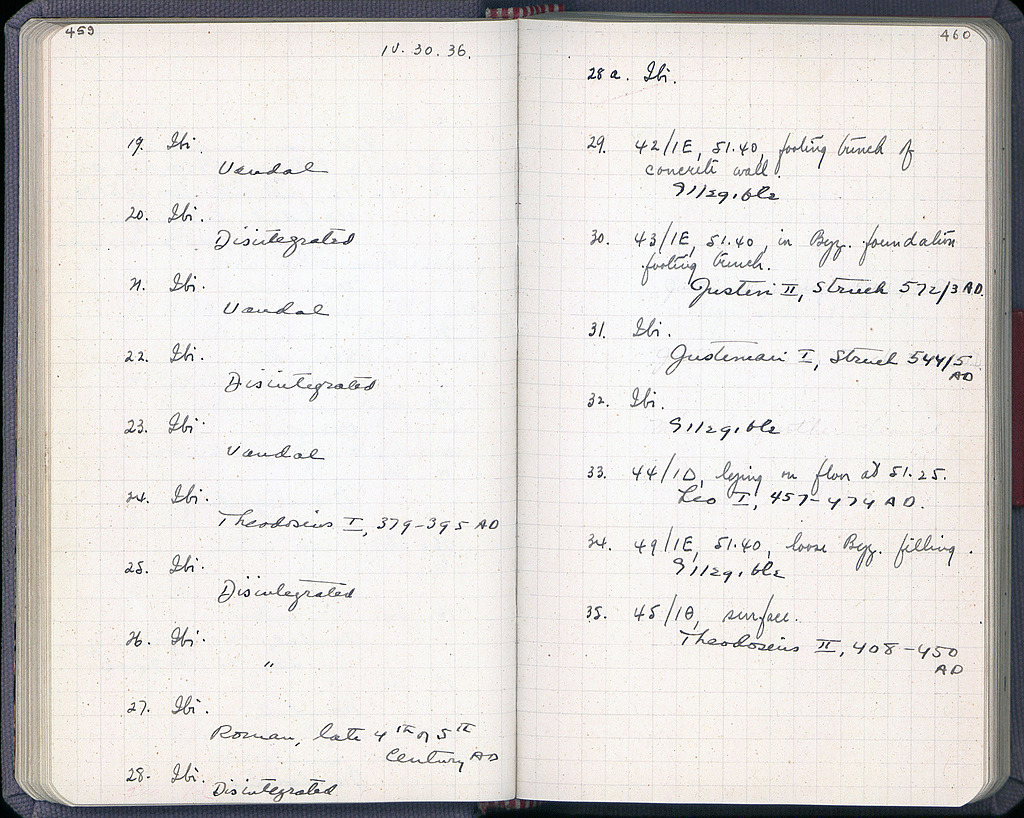 459
IV. 30. 36.
19. Ibi.
Vandal
20. Ibi.
Disintegrated
21. Ibi.
Vandal
22. Ibi.
Disintegrated
23. Ibi.
Vandal
24. Ibi.
Theodosius I, 379-395 AD
25. Ibi.
Disintegrated
26. Ibi.
"
27. Ibi.
Roman, late 4th or 5th
Century AD
28. Ibi.
Disintegrated
460
28a. Ibi.
29. 42/ΙΕ, 51.40, footing trench of
concrete wall.
Illegible
30. 43/ΙΕ, 51.40, in Byz. foundation
footing trench.
Justin II, Struck 572/3 AD.
31. Ibi.
Justinian I, Struck 544/5
AD
32. Ibi.
Illegible
33. 44/ΙD, lying on floor at 51.25.
Leo I, 457-474 AD.
34. 49/ΙΕ, 51.40, loose Byz. filling.
Illegible
35. 45/ΙΘ, surface.
Theodosius II, 408-450
AD